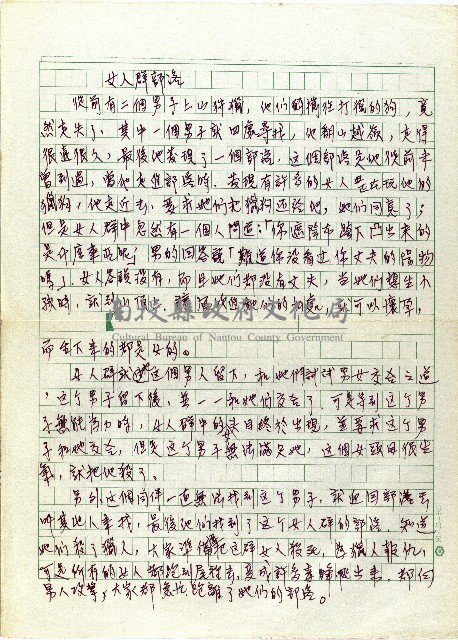 女人群部落
從前有二個男子上山狩獵,他們的獵狗打獵的狗,竟
然走失了,其中一個男子就四處尋找,他翻山越嶺,走得
很遠很久,最後他發現了一個部落。這個部落是他從前未
曾到過,當他走進部落時,發現有許多的女人正在玩他的
獵狗,他走近去,要求她們把獵狗還給他,她們同意了;
但是女人群中忽然有一個人問道:「你遮陰布
是什麼東西呢」男的回答說「難道你沒看过你丈夫的陽物
嗎」女人答說沒有,而且她們都沒有丈夫,當她們想生小
孩時,就到山頂上,讓風吹進她們的 就可以懷孕,
而生下來的都是女的。
女人群就把這個男人留下,和她們試試男女交合之道
,這个男子留下後,並一一和她們交合了。可是等到这个男
子無能為力時,女人群中的女頭目終於出現,並要求这个男
子和她交合,但是这个男子無法滿足她,這個女頭目很生
氣,就把他殺了。
另外,這個同伴一直無法找到这个男子,就返回部落去
叫其他人來找,最後他們找到了这个女人群的部落,知道
她們殺了獵人,大家準備把这群女人殺死,為獵人報仇,
可是所有的女人都跑到屋裡去,變成許多 飛出來,都向
男人攻擊,大家都急忙跑離了她們的部落。
南投縣政府文化局
Cultural Bureau of Nantou County Government